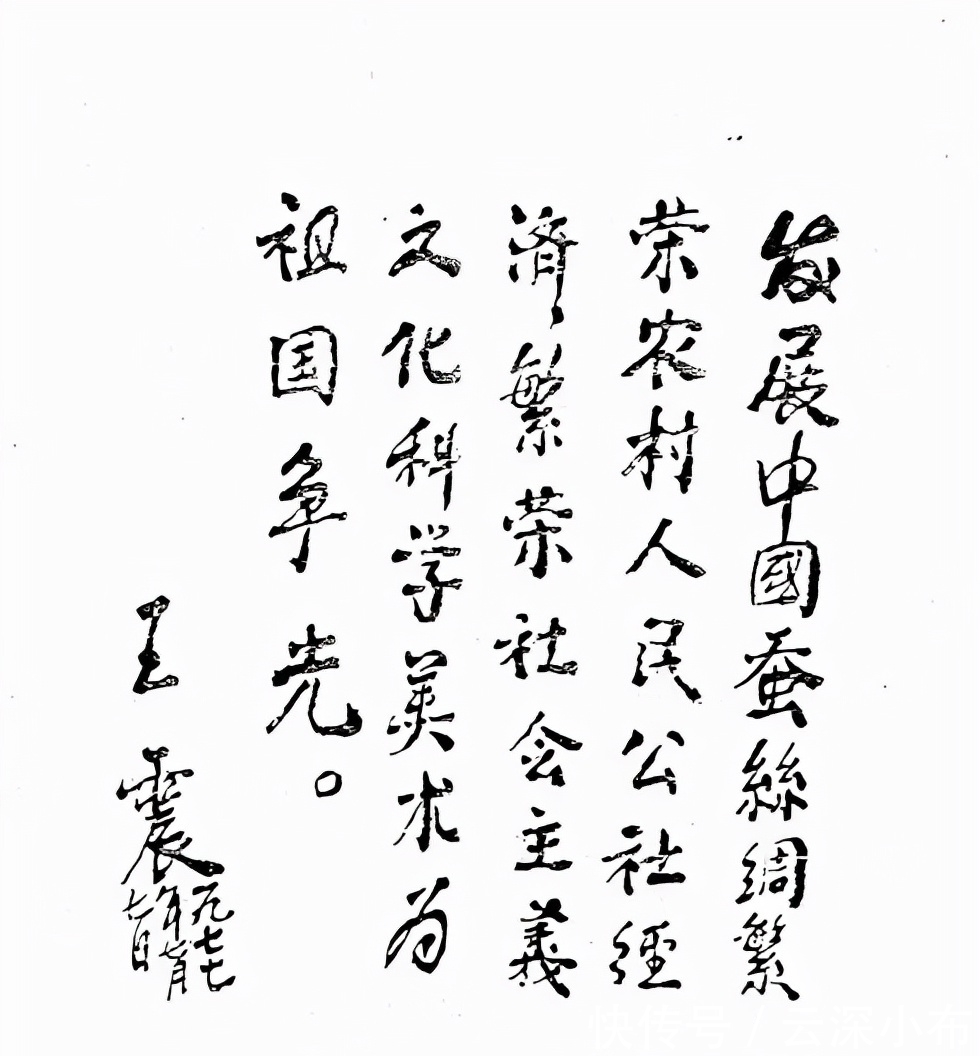 发展中國蚕絲綢繁
荣农村人民公社經
济,繁荣社会主義
文化科学美术为
祖国争光。
王震
一九七七
年七月
快传号 / 云深小布